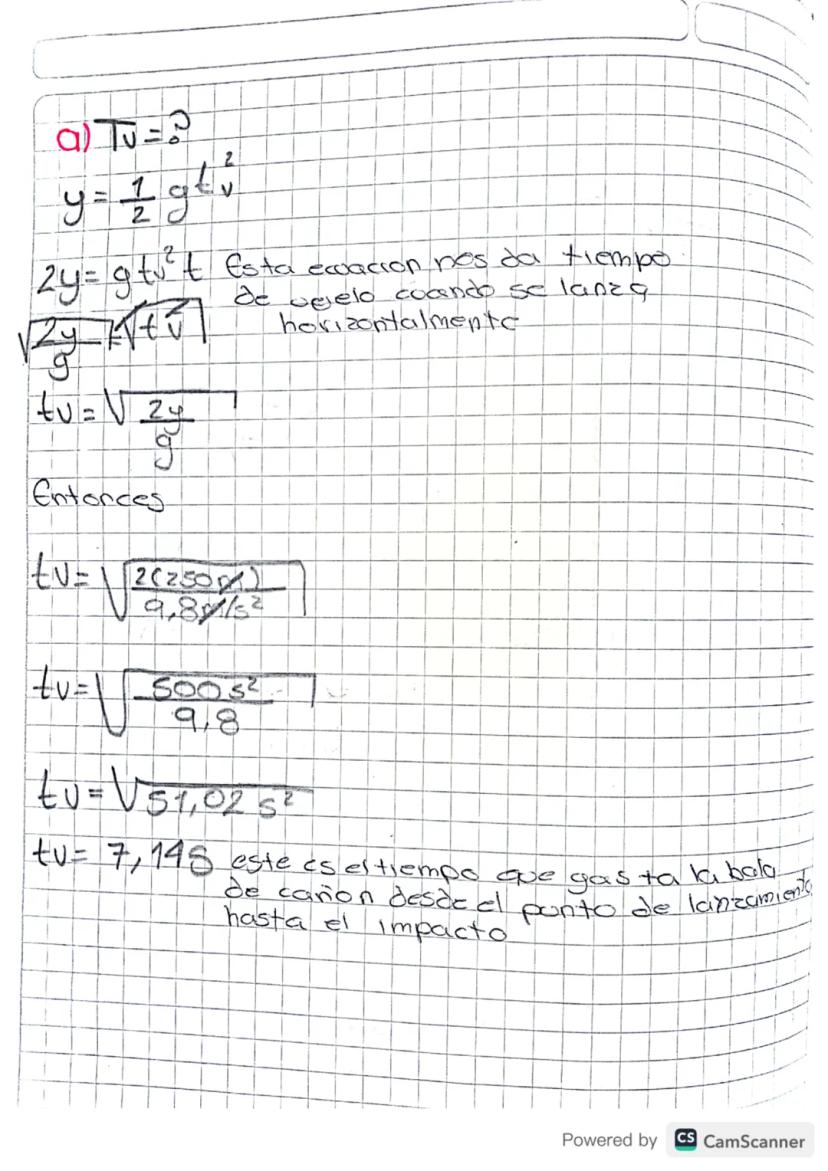 a) Tv = ?
y = 1/2 g tv²
2y = g tv² t Esta ecuacion nos da tiempo
de vuelo cuando se lanza
horizontalmente
√(2y/g) = √(tv²)
tv = √(2y/g)
Entonces
tv = √(2(250m)/9,8m/s²)
tv = √(500s²/9,8)
tv = √51,02 s²
tv = 7,14s este es el tiempo que gasta la bala
de cañon desde el punto de lanzamiento
hasta el impacto
Powered by CS CamScanner